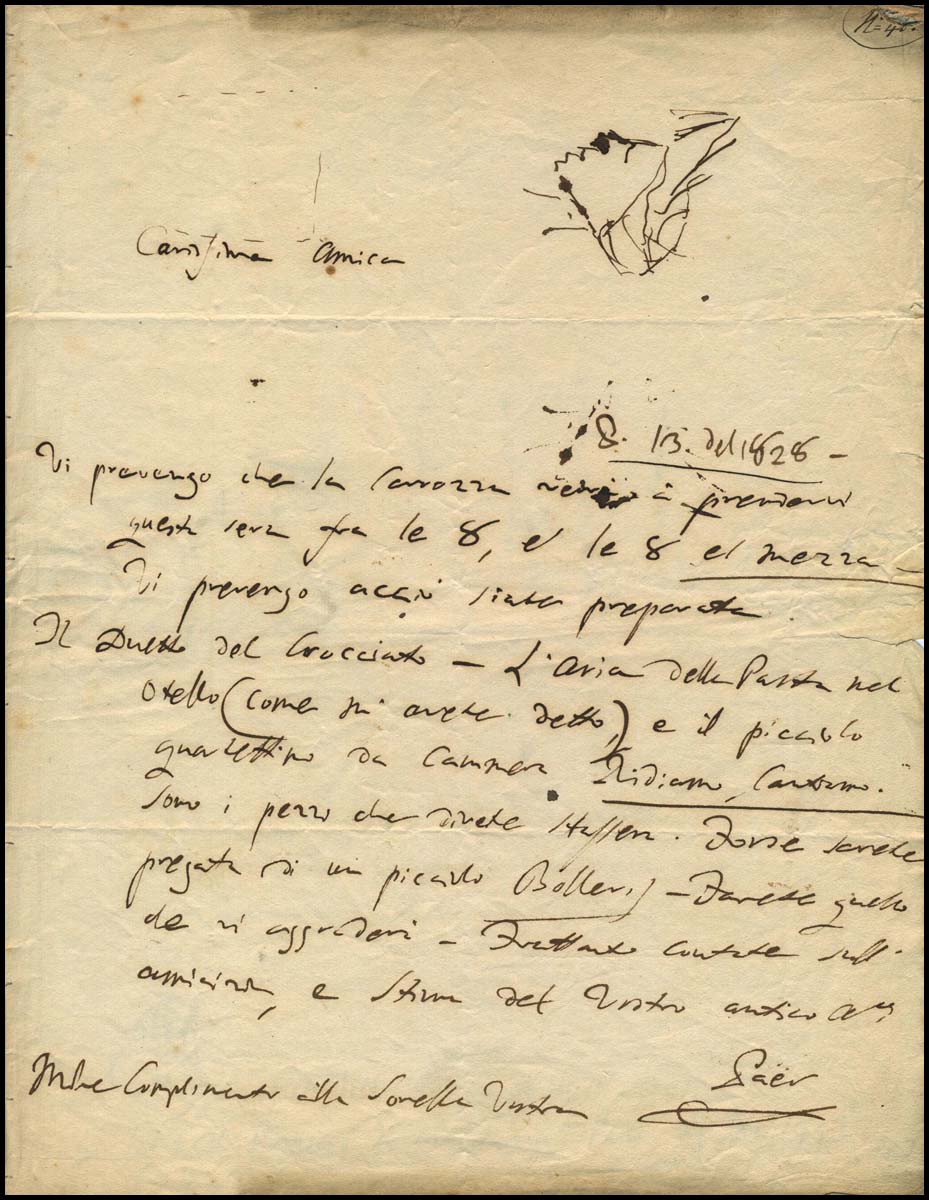 N. = 40.
Carissima Amica
8. 13. del 1828 -
Vi prevengo che la Carrozza verrà à prendervi
questa sera fra le 8, et le 8 et mezza -
Vi prevengo acciò siate preparata
Il Duetto del Crocciato - L'aria della Pasta nel
Otello (come mi avete detto,) e il piccolo
quartettino da Cammera "Ridiamo, Cantiamo."
Sono i pezzi che direte stassera. Forse sarete
pregata di un piccolo Bollero - Farete quello
che vi aggraderà - Frattanto contate sull'
amicizia, e stima del Vostro antico A
Paër
Mille Complimenti alla Sorella Vostra